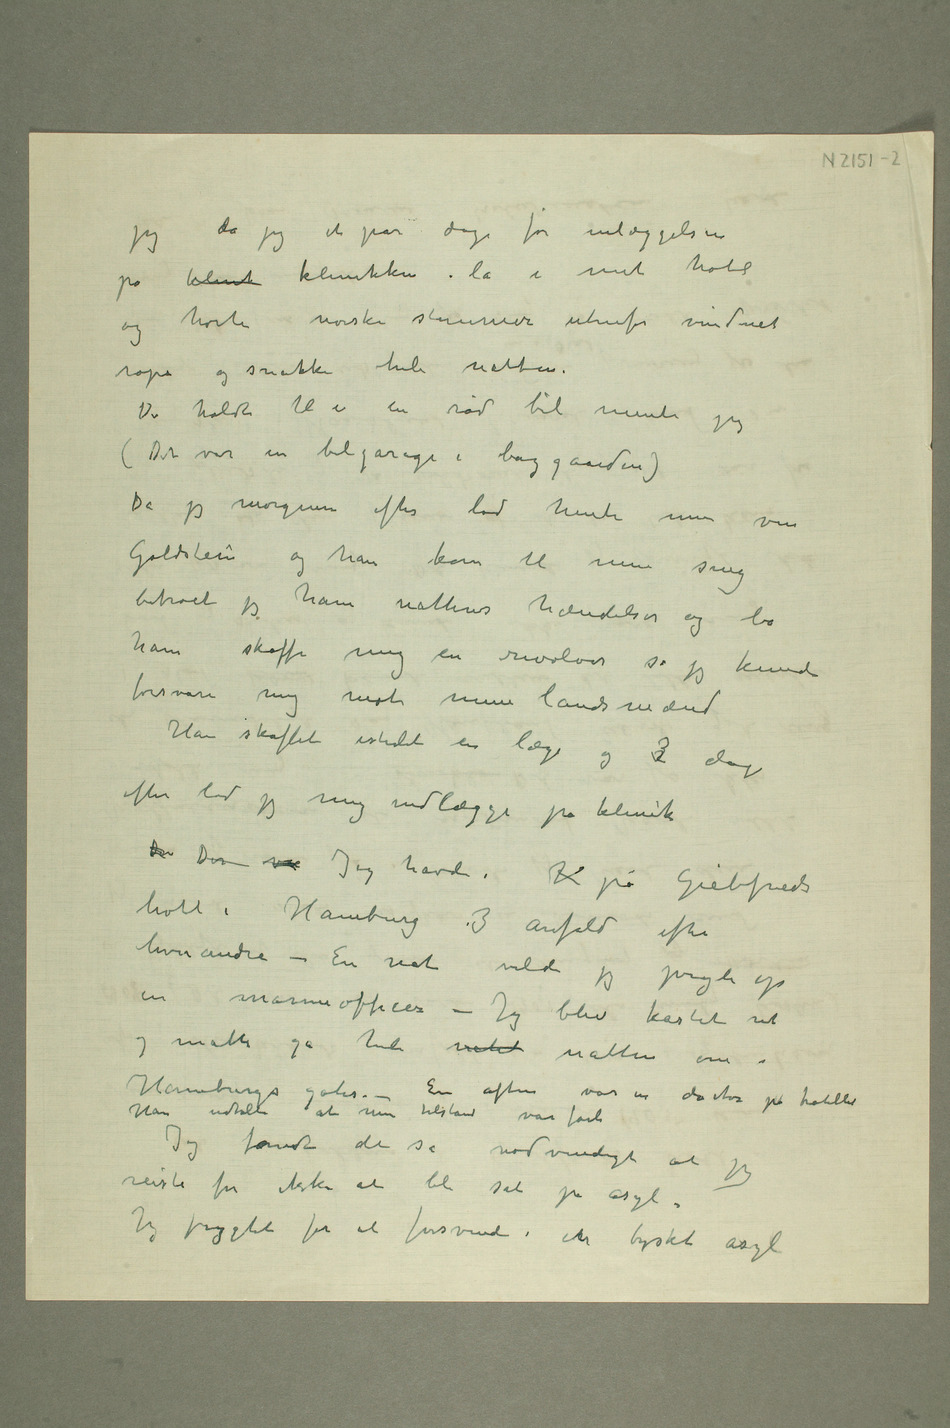 N 2151-2
jeg da jeg et par dage før inlæggelsen
på klinik klinikken lå i mit hotel
og hørte norske stemmer utenfor vinduet
rope og snakke hele natten.
De holdt til i en rød bil mente jeg
(Det var en bilgarage i baggaarden)
Da jeg morgenen efter lod hente min ven
Goldstein og han kom til min seng
betroet jeg ham nattens hændelser og ba
ham skaffe mig en revolver så jeg kunde
forsvare mig mot mine landsmænd
Han skaffet istedet en læge og 3 dage
efter lod jeg mig indlægge på klinik
De Der var Jeg havde i K på Giebfrieds
hotel i Hamburg 3 anfald efter
hverandre – En nat vilde jeg prygle op
en marineofficer – Jeg blev kastet ut
og måtte gå hele natten om i
Hamburgs gater. – En aften var en doctor på hotellet
Han udtalte at min tilstand var farlig
Jeg fandt det så nødvendigt at jeg
reiste for ikke at bli sat på asyl.
Jeg frygtet for at forsvinde i et tyskt asyl